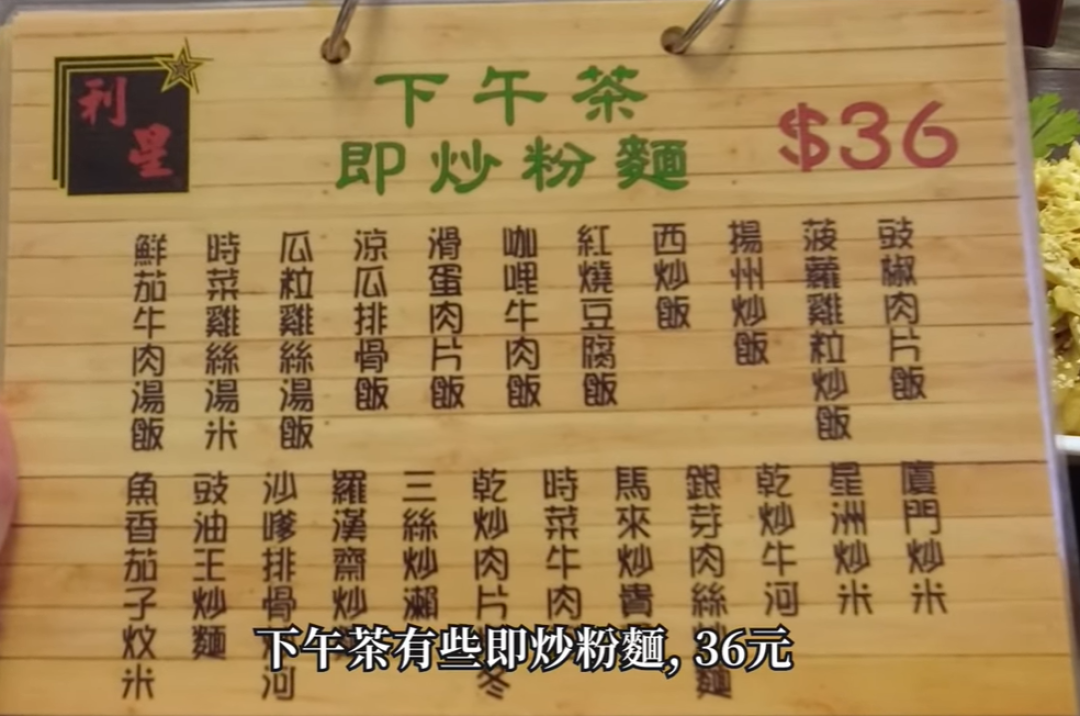 利星
下午茶
即炒粉麵
$36
豉椒肉片飯
菠蘿雞粒炒飯
揚州炒飯
西炒飯
紅燒豆腐飯
咖哩牛肉飯
滑蛋肉片飯
涼瓜排骨飯
瓜粒雞絲湯飯
時菜雞絲湯米
鮮茄牛肉湯飯
廈門炒米
星洲炒米
乾炒牛河
銀芽肉絲炒麵
馬來炒貴
時菜牛肉
乾炒肉片冬
三絲炒瀨
羅漢齋炒
沙嗲排骨河
豉油王炒麵
魚香茄子炆米
下午茶有些即炒粉麵, 36元